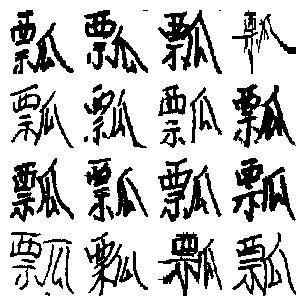 瓢瓢瓢瓢
瓢瓢瓢瓢
瓢瓢瓢瓢
瓢瓢瓢瓢